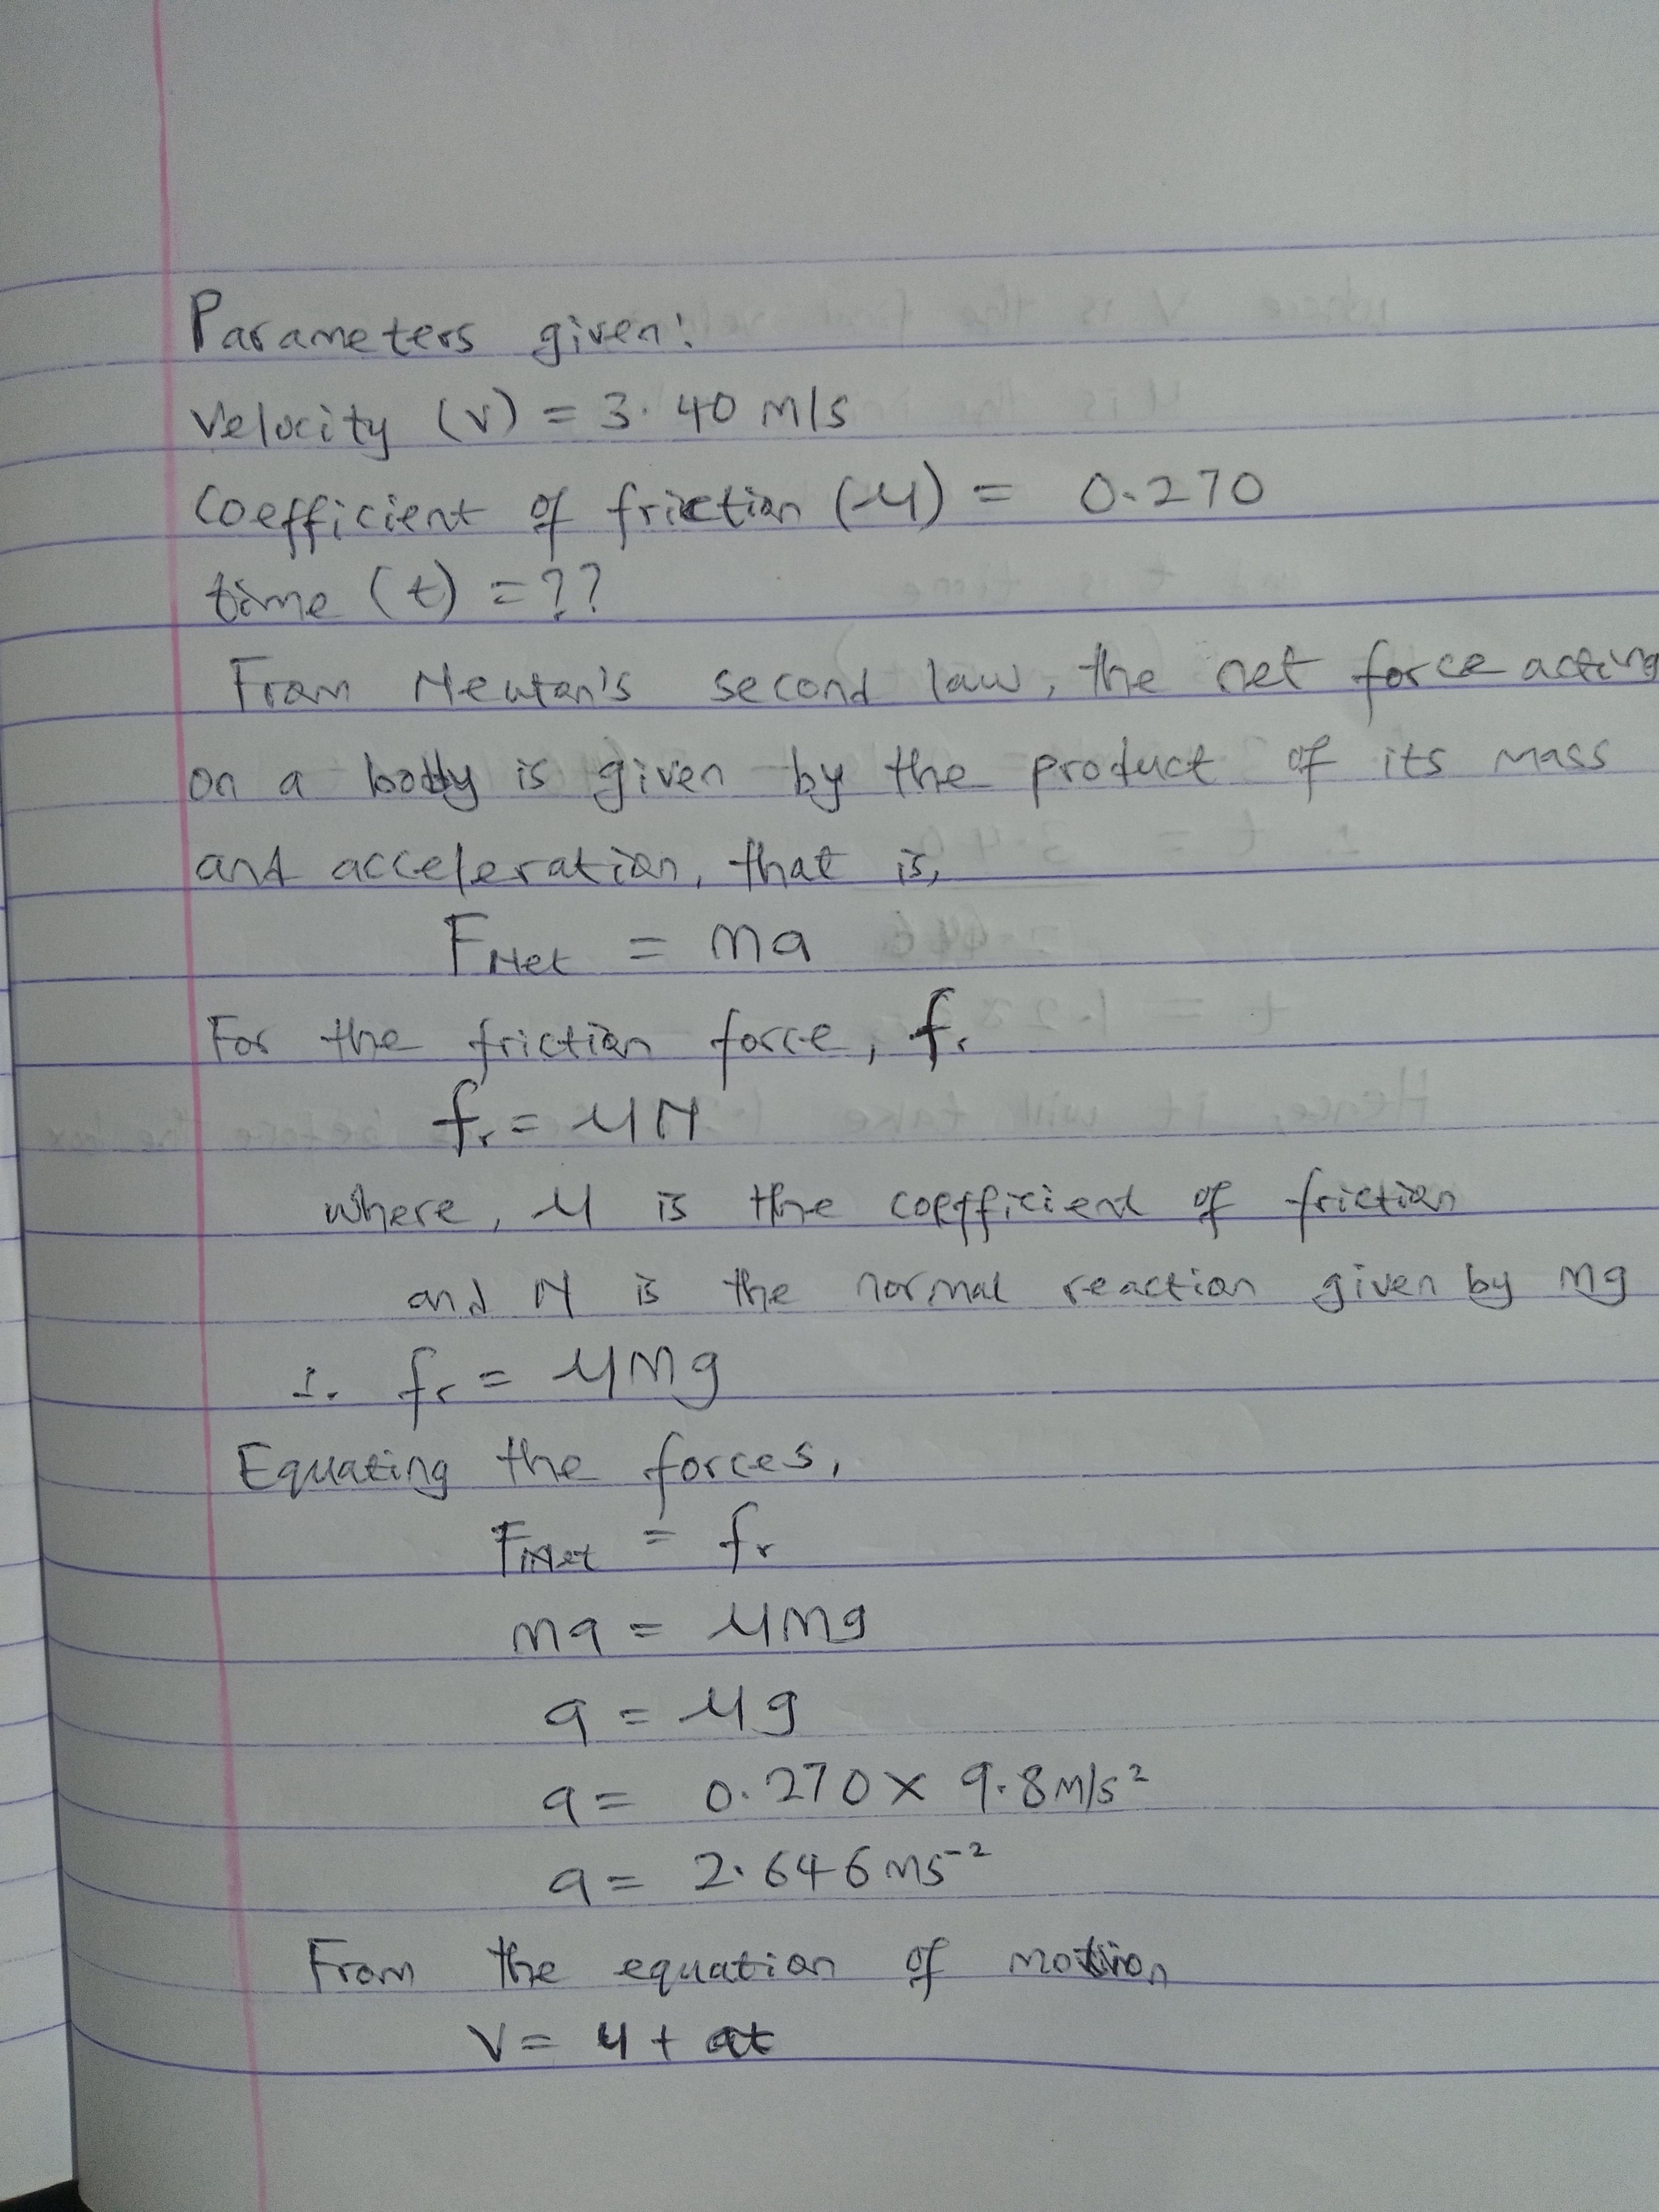 Parameters given:
Velocity (v) = 3.40 m/s
Coefficient of friction (μ) = 0.270
time (t) = ??
From Newton's second law, the net force acting
on a body is given by the product of its mass
and acceleration, that is,
FNet = ma
For the friction force, fr
fr = μN
where, μ is the coefficient of friction
and N is the normal reaction given by mg
∴ fr = μmg
Equating the forces,
FNet = fr
ma = μmg
a = μg
a = 0.270 × 9.8 m/s²
a = 2.646 ms⁻²
From the equation of motion
V = u + at